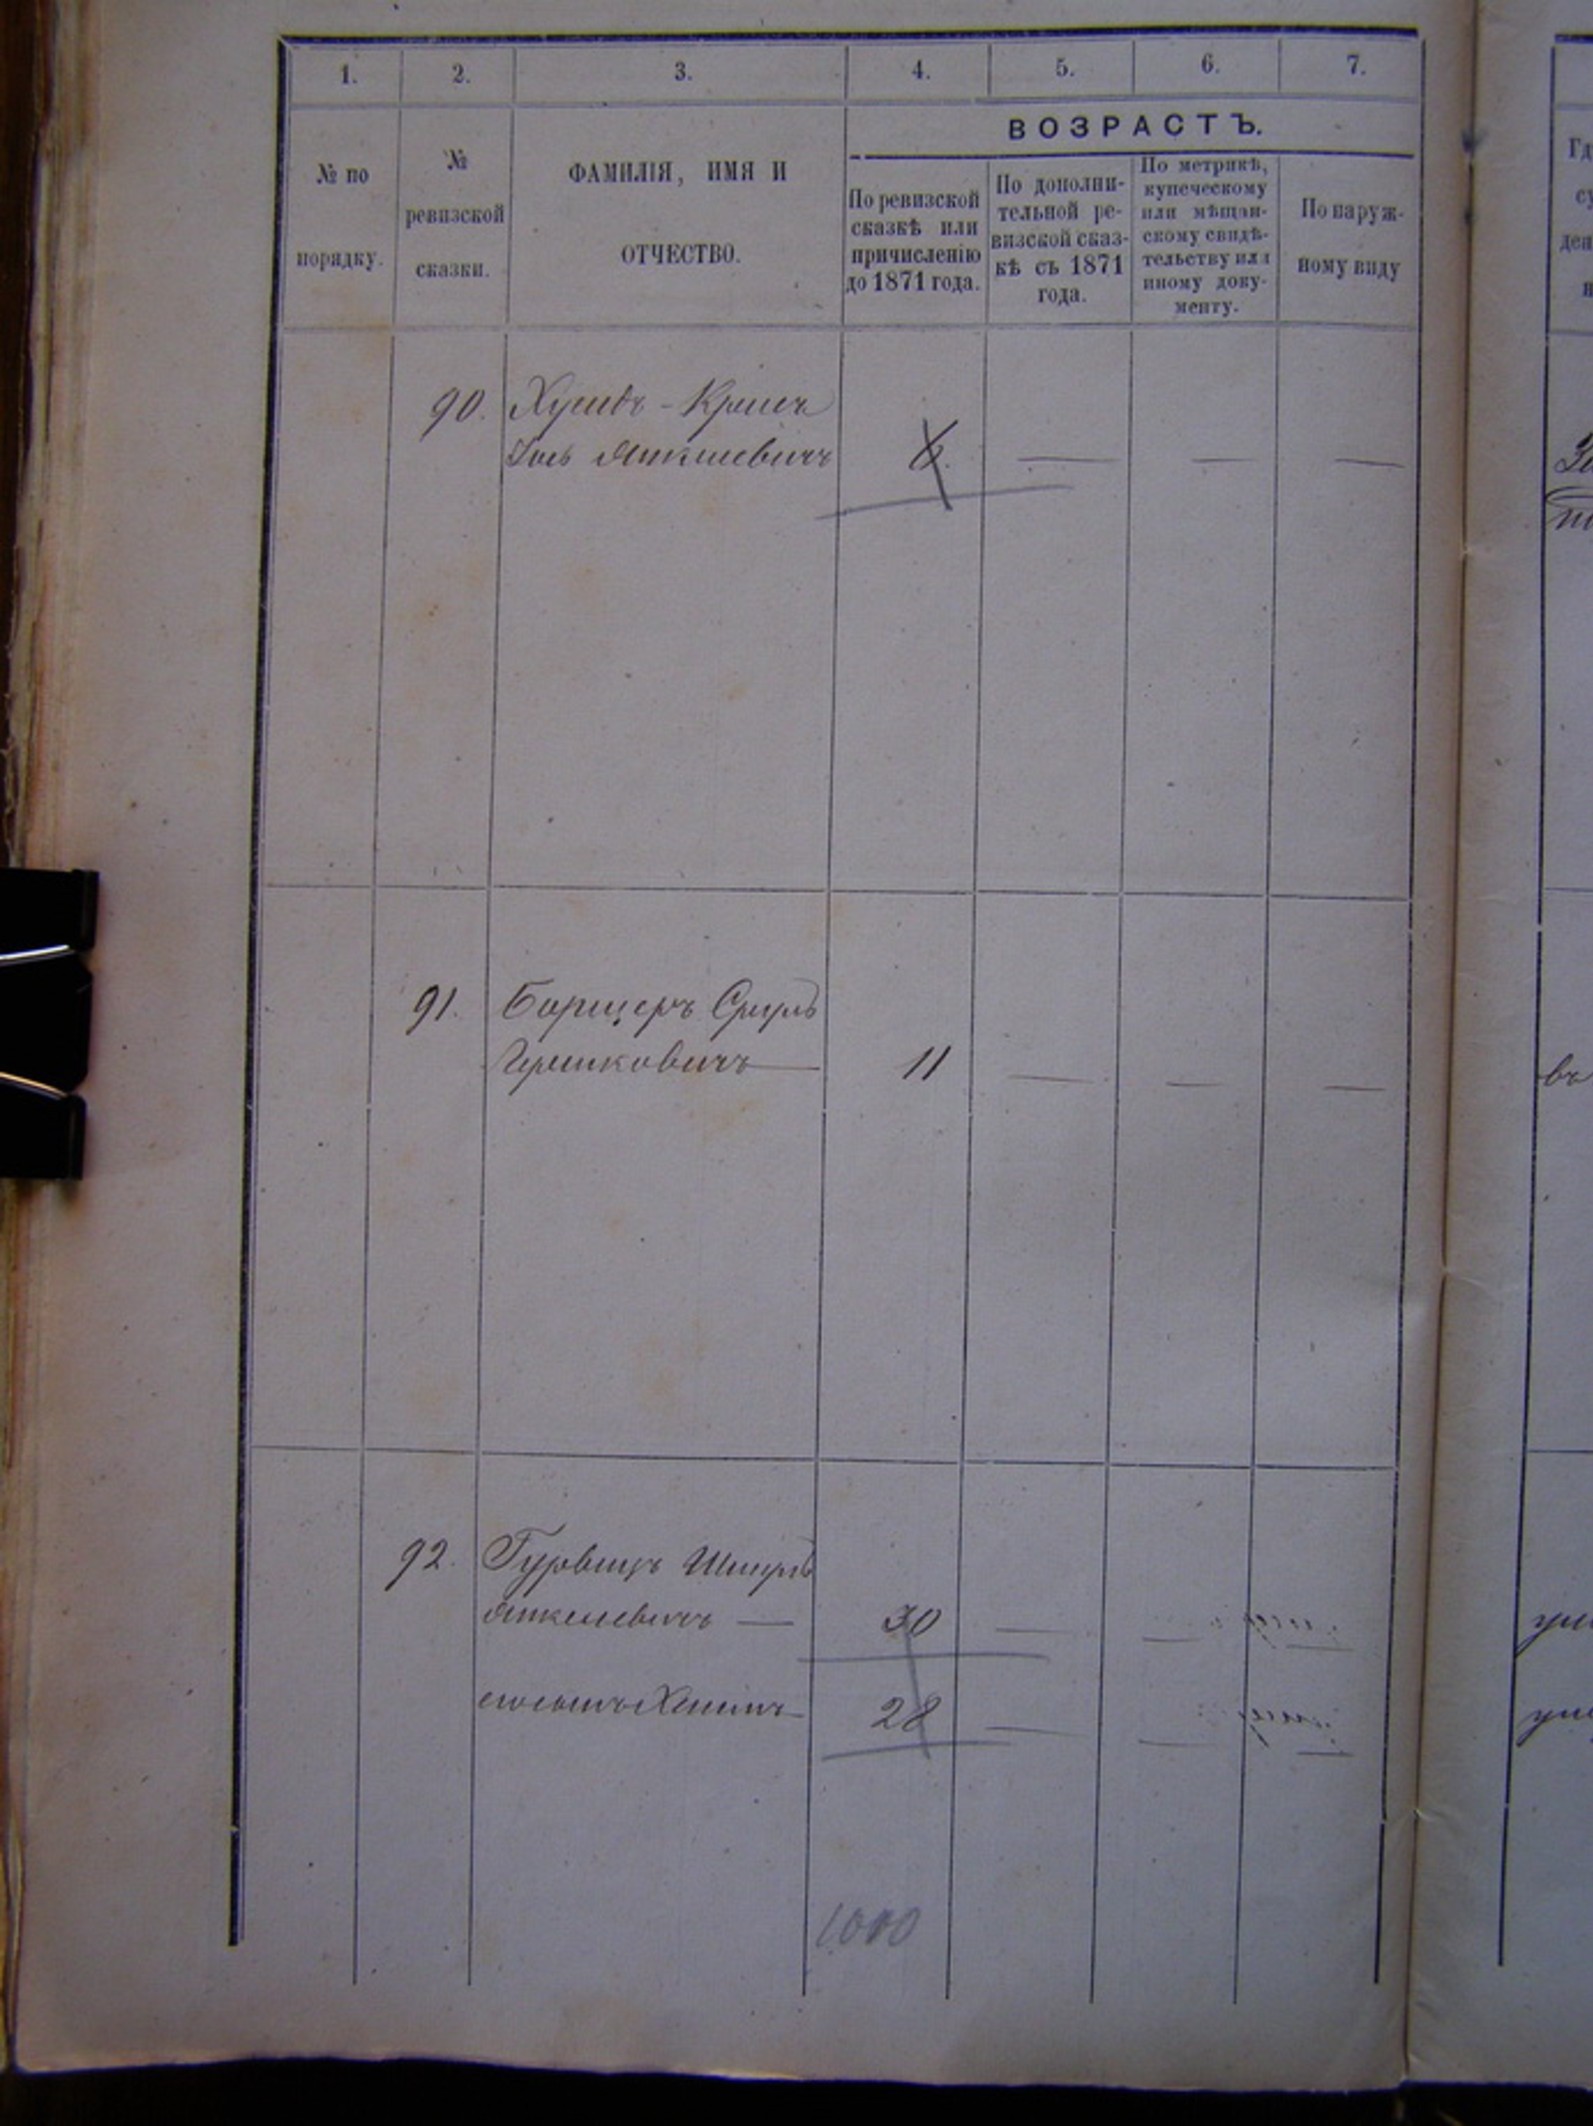 1.
2.
3.
4.
5.
6.
7.
№ по
порядку.
№
ревизской
сказки.
ФАМИЛІЯ, ИМЯ И
ОТЧЕСТВО.
ВОЗРАСТЪ.
По ревизской
сказкѣ или
причисленію
до 1871 года.
По дополни-
тельной ре-
визской сказ-
кѣ съ 1871
года.
По метрикѣ,
купеческому
или мѣщан-
скому свидѣ-
тельству или
иному доку-
менту.
По наруж-
ному виду
90.
91. Борщеръ Сруль
Гершковичъ 11
92. Гурвицъ Шмуль
Янкелевичъ — 30
28
1000